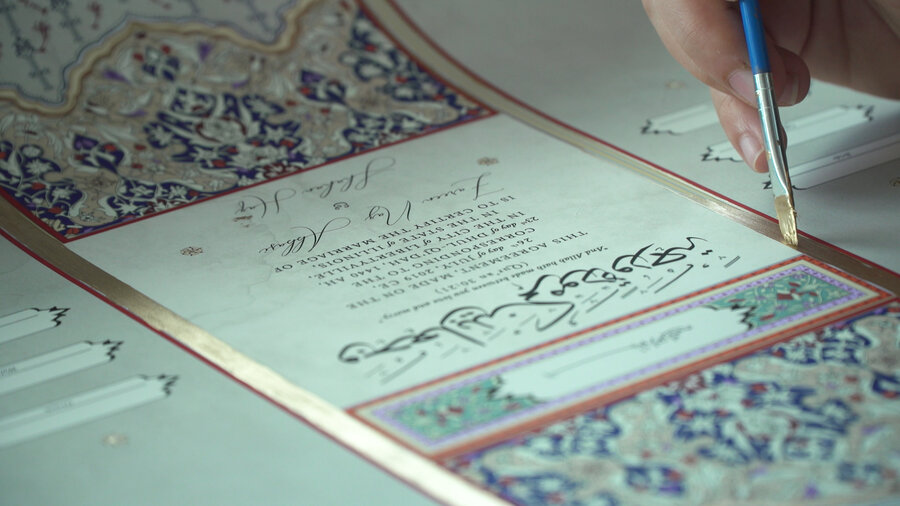 وجعل بينكم مودة ورحمة
"And Allah hath made between you love and mercy"
(Qur'an 30:21)
THIS AGREEMENT, MADE ON THE
26th day of JULY, 2019 CE,
CORRESPONDING TO THE
23rd day of DHUL QI'DAH 1440 AH,
IN THE CITY OF LIBERTYVILLE,
IN THE STATE OF ILLINOIS,
IS TO CERTIFY THE MARRIAGE OF
Naz
&